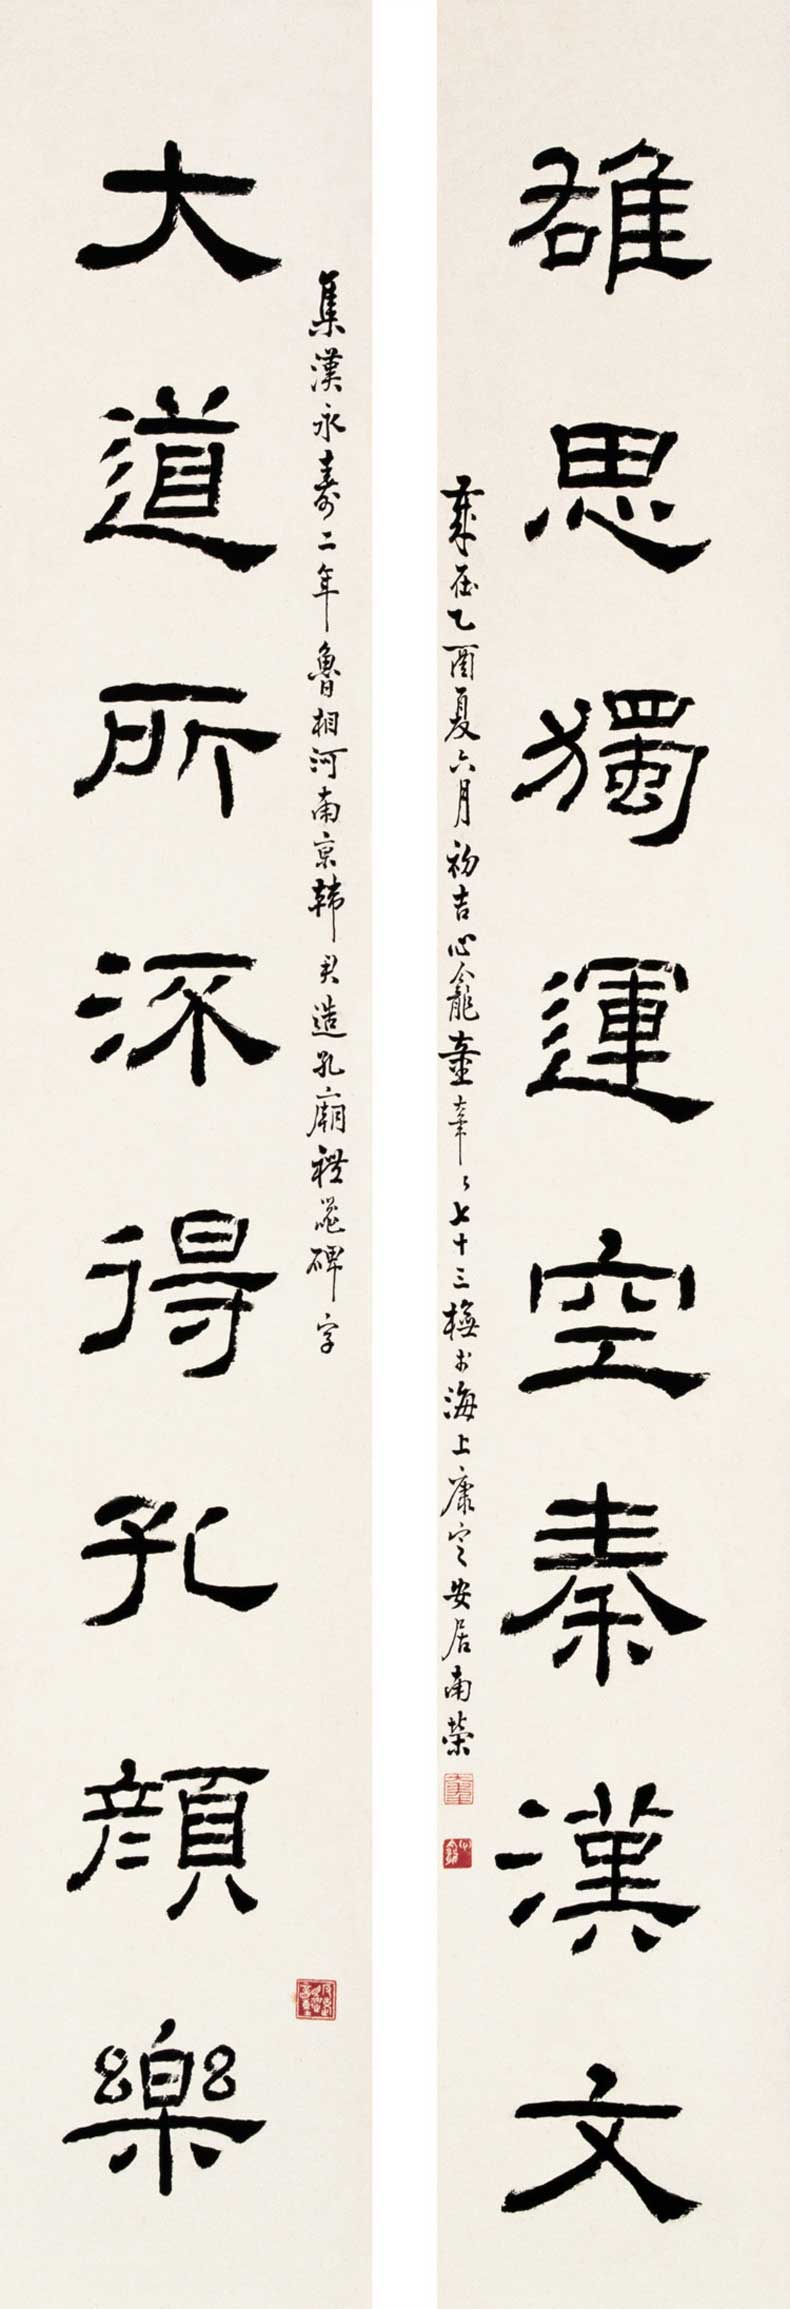 雄思獨運空秦漢文
歲在乙酉夏六月初吉心龕童大年〻七十三橅於海上康定安居南榮
集漢永壽二年魯相河南京韓君造孔廟禮器碑字
大道所深得孔顏樂